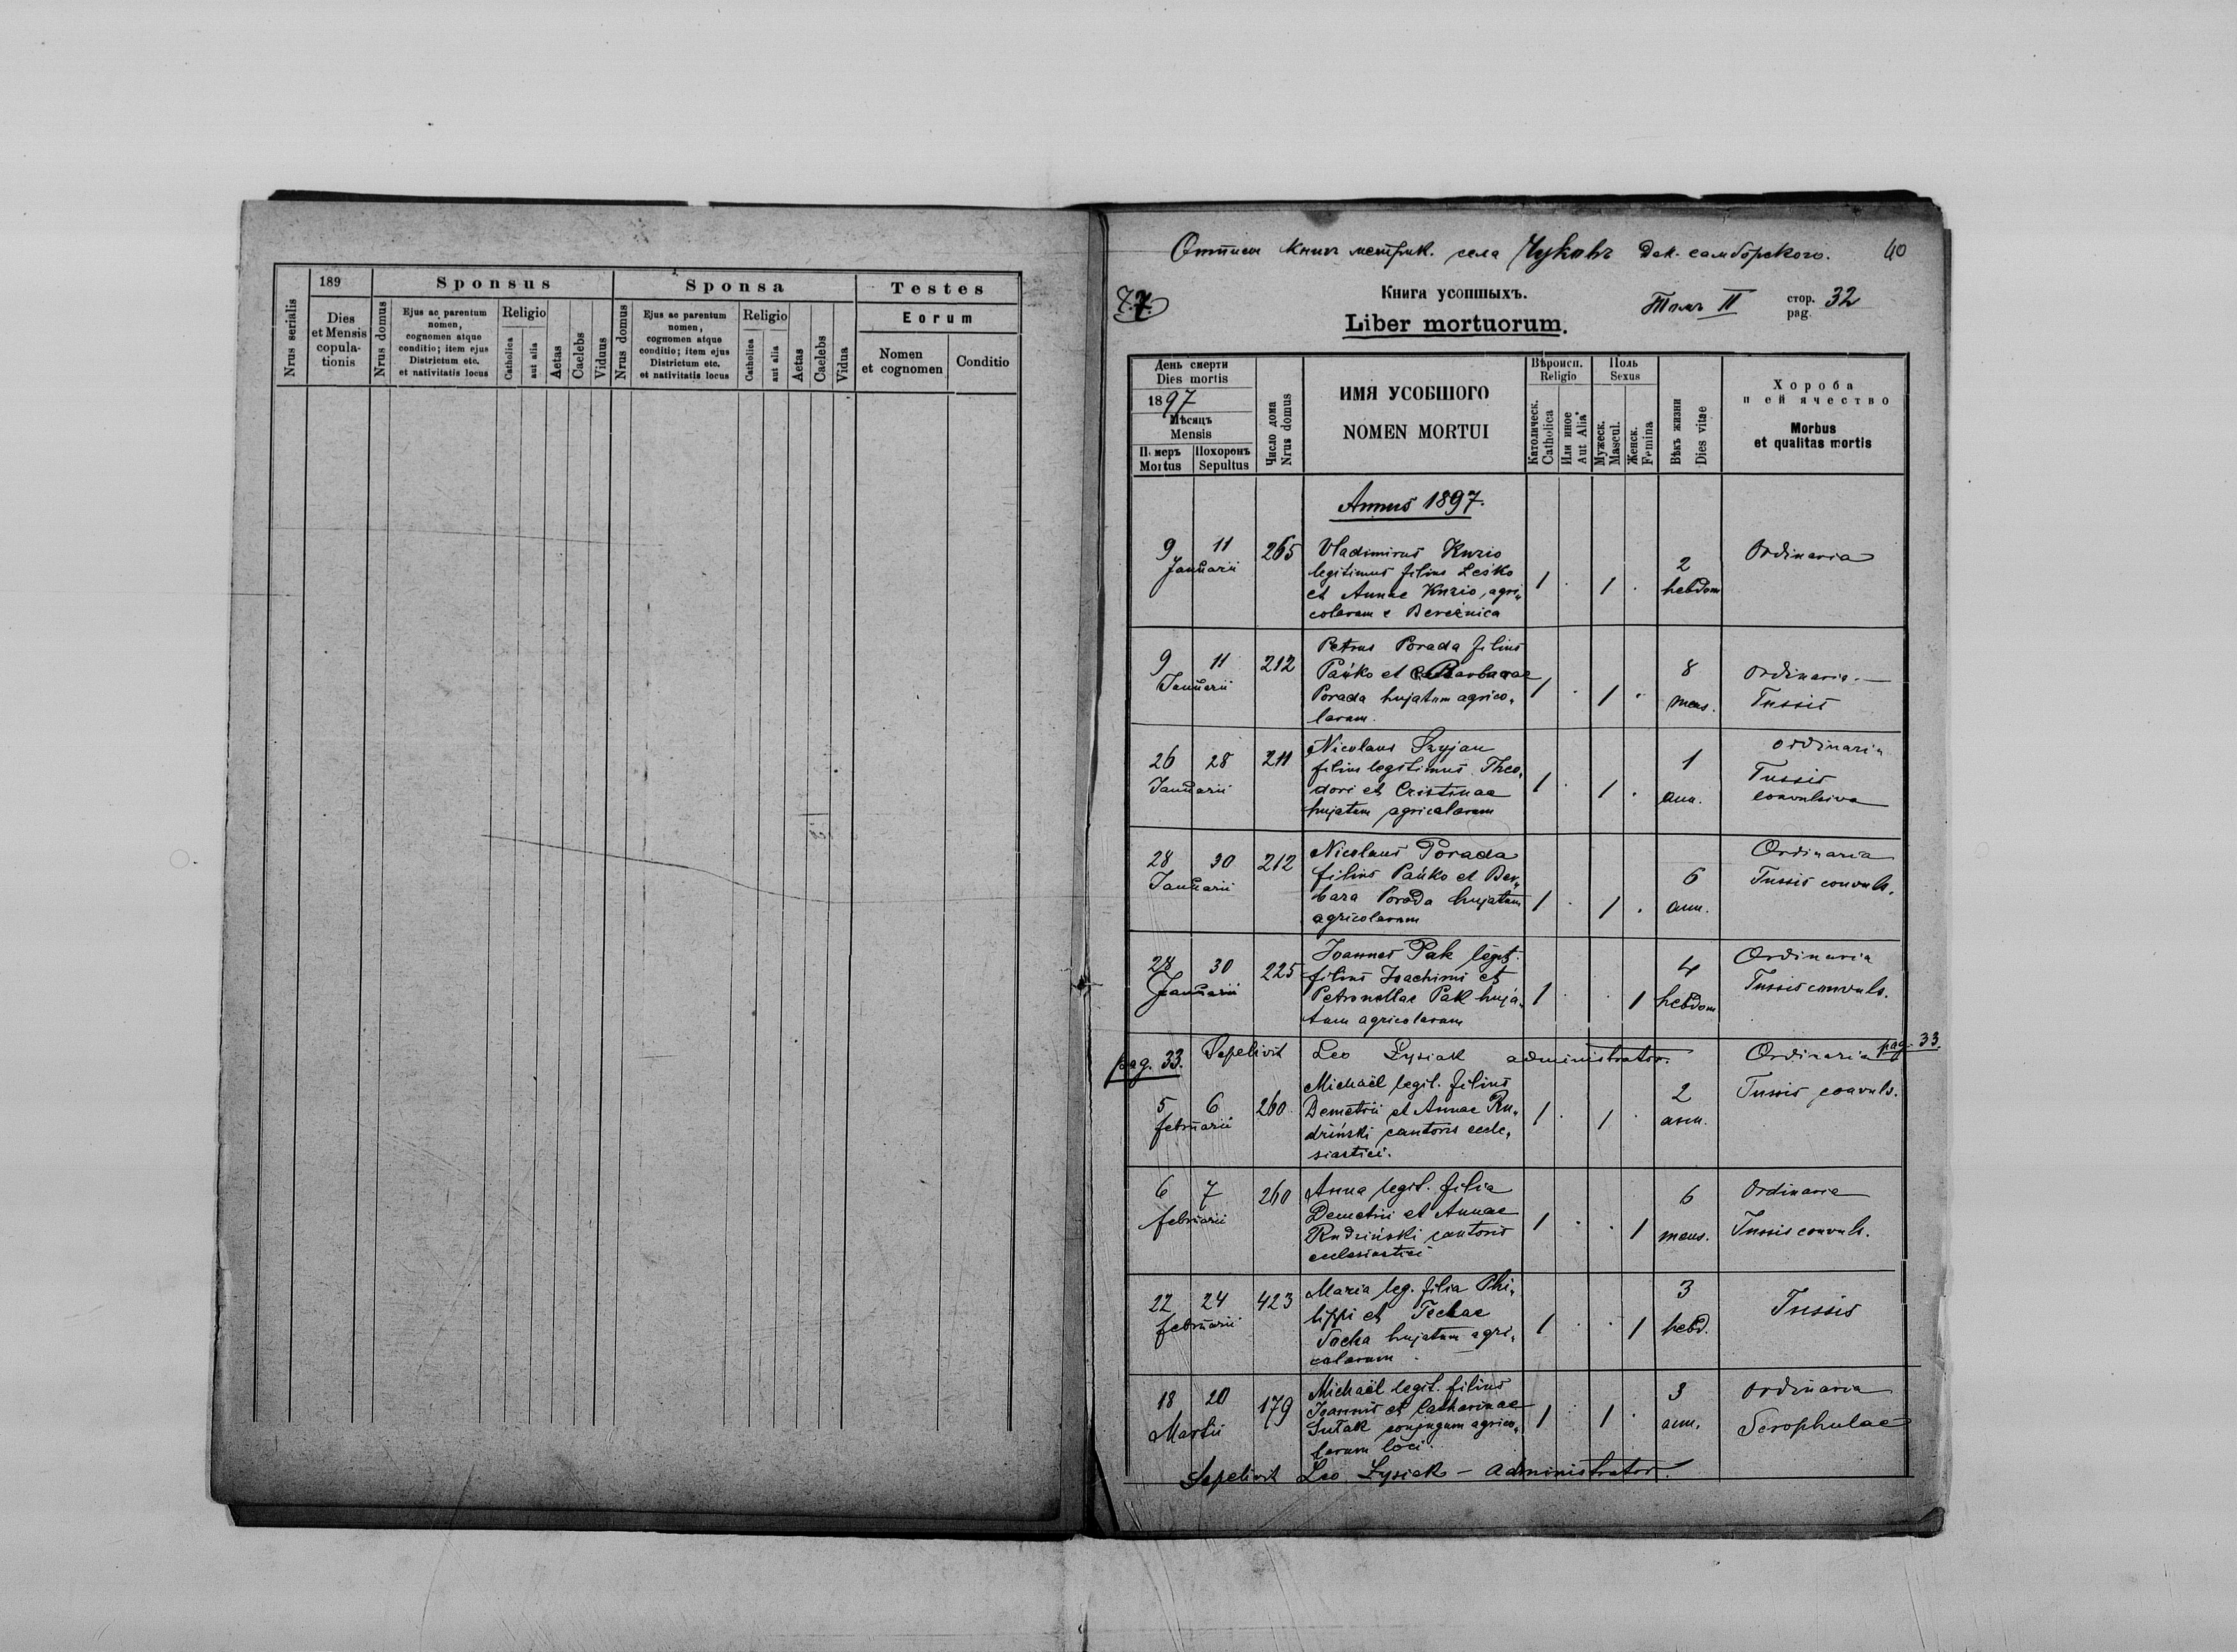 189
Sponsus
Sponsa
Testes
Nrus serialis
Dies
et Mensis
copula-
tionis
Nrus domus
Ejus ac parentum
nomen,
cognomen atque
conditio; item ejus
Districtum etc.
et nativitatis locus
Religio
Catholica
aut alia
Aetas
Caelebs
Viduus
Nrus domus
Ejus ac parentum
nomen,
cognomen atque
conditio; item ejus
Districtum etc.
et nativitatis locus
Religio
Catholica
aut alia
Aetas
Caelebs
Vidua
Eorum
Nomen
et cognomen
Conditio
Отпись книгъ метрик. села Чуковъ Дек. самборского. 40
Книга усопшыхъ.
Liber mortuorum.
Томъ II стор. pag. 32
День смерти
Dies mortis
1897
Мѣсяцъ
Mensis
Mortus
Похоронъ
Sepultus
Число дома
Nrus domus
ИМЯ УСОБШОГО
NOMEN MORTUI
Вѣроисп.
Religio
Католическ.
Catholica
Или иное
Aut Alia
Поль
Sexus
Мужеск.
Mascul.
Женск.
Femina
Вѣкъ жизни
Dies vitae
Хороба
п ей ячество
Morbus
et qualitas mortis
Annus 1897.
9 11 265 Vladimirus Kuzio Ordinaria
Januarii legitimus filius Leśko 2
et Annae Kuzio, agri„ 1 . 1 . hebdom
colarum e Bereźnica
Petrus Porada filius
9 11 212 Pańko et Barbarae 8 ordinaria.—
Januarii Porada hujatum agrico„ 1 . 1 . mens. Tussis
larum.
Nicolaus Szyjan ordinaria
26 28 211 filius legitimus Theo„ 1 Tussis
Januarii dori et Cristinae 1 . 1 . ann. convulsiva
hujatum agricolarum
28 30 212 Nicolaus Porada Ordinaria
Januarii filius Pańko et Bar„ 6 Tussis convuls.
bara Porada hujatum 1 . 1 . ann.
agricolarum
Joannes Pak legit. Ordinaria
28 30 225 filius Joachimi et 4 Tussis convuls.
Januarii Petronellae Pak huja„ 1 . . 1 hebdom
tum agricolarum
pag. 33. Sepelivit Leo Łysiak administrator. Ordinaria pag. 33.
Michaël legit. filius Tussis convuls.
5 6 260 Demetrii et Annae Ru„ 1 . 1 . 2
februarii driński cantoris eccle„ ann.
siastici.
6 7 260 Anna legit. filia 6 Ordinaria
februarii Demetrii et Annae 1 . . 1 mens. Tussis convuls.
Rudziński cantoris
ecclesiastici
22 24 423 Maria leg. filia Phi„ 3 Tussis
februarii lippi et Teclae 1 . . 1 hebd.
Socha hujatum agri„
colarum.
18 20 179 Michaël legit. filius 3 ordinaria
Martii Joannis et Catharinae 1 . 1 . ann. Scrophulae
Sutak conjugum agrico„
larum loci.
Sepelivit Leo Łysiak – administrator.